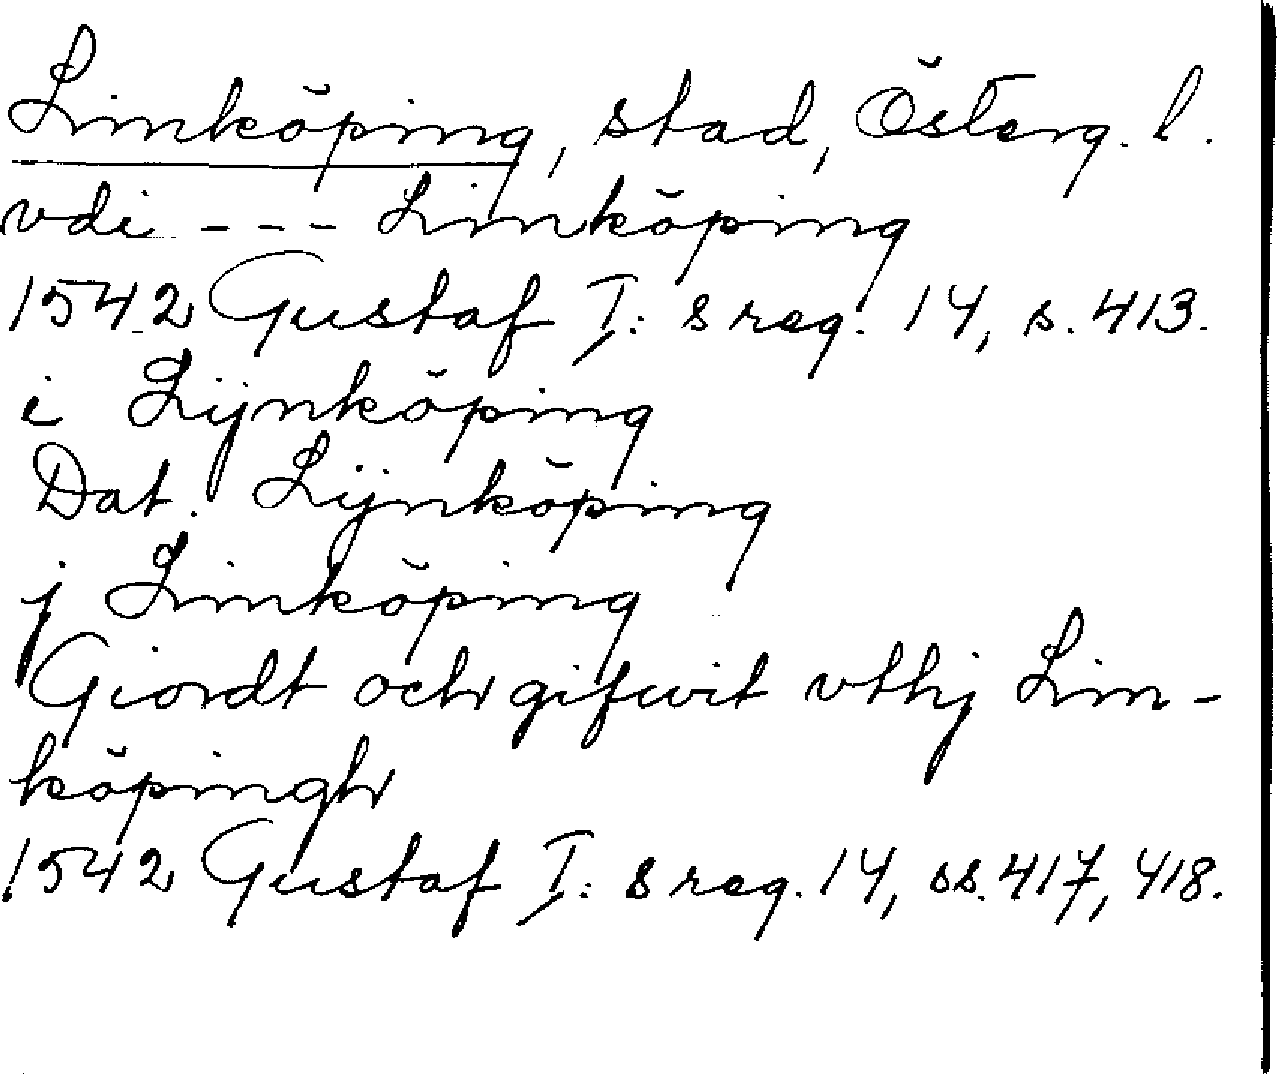 Linköping, stad, Österg. l.
vdi --- Linköping
1542 Gustaf I: s reg. 14, s. 413.
i Lijnköping
Dat. Lijnköping
j Linköping
Giordt och gifwit vthj Lin-
köpingh
1542 Gustaf I: s reg. 14, ss. 417, 418.